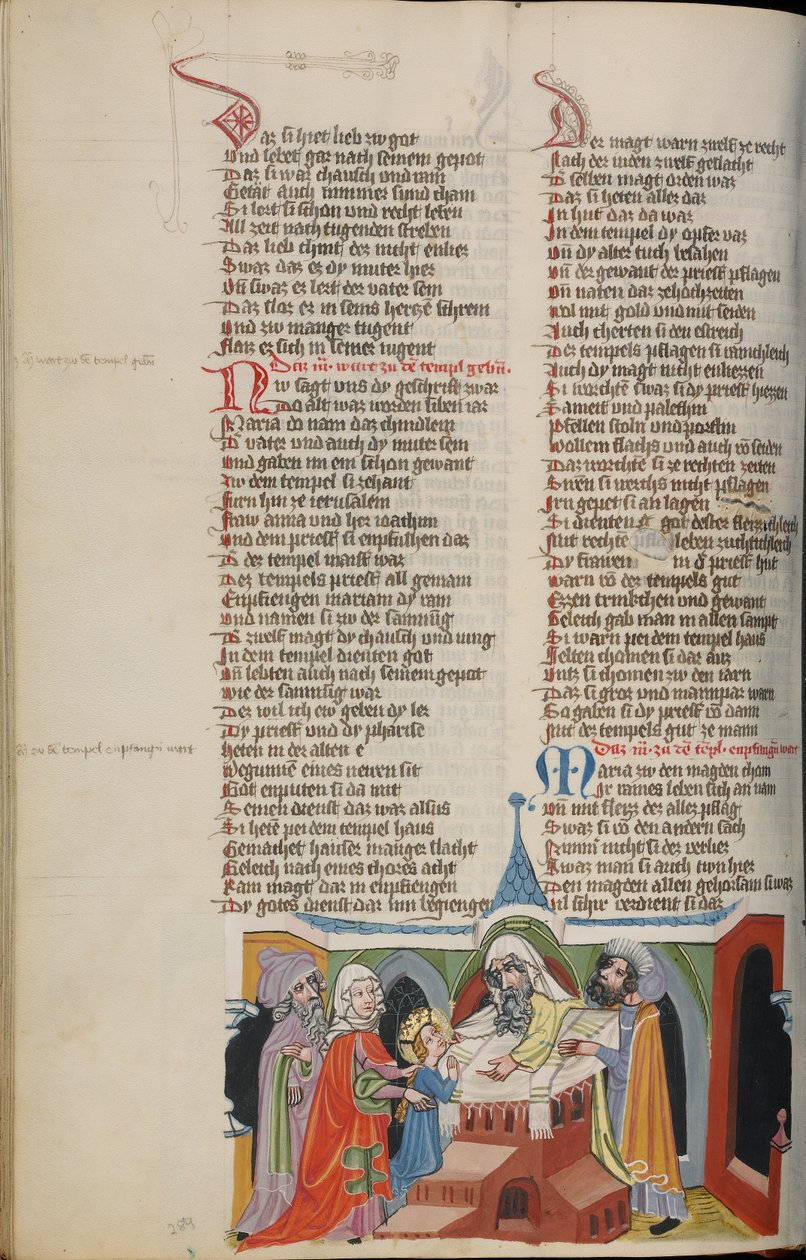 Daz si hiet lieb zw got
Und lebet gar nach seinem gepot
Daz si war chausch und rain
Getät auch nimmer sund chain
Si lert si schon und recht leben
All zeit nach tugenden streben
Daz lieb chint dez nicht enliez
Swaz daz ez dy muter hiez
Uñ swaz ez lert der vater sein
Daz sloz ez in seins hertzē schrein
Und zw maniger tugent
Flaiz ez sich in seiner iugent
Daz m̄. wart zu dē tempel gebñ.
Nw sagt uns dy geschrift zwar
Do alt waz worden siben iar
Maria do nam daz chindlein
Ir vater und auch dy muter sein
Und gaben im ein schon gewant
Zw dem tempel si zehant
Furn hin ze ierusalem
Fraw anna und her ioachim
Und dem priest si enpfulhen daz
Der tempel maist waz
Dez tempels priest all gemain
Enpfiengen mariam dy rain
Und namen si zw der samnūg
Dy zwelf magt dy chausch und iung
In dem tempel dienten got
Uñ lebten auch nach seinem gepot
Wie der samnūg war
Der wil ich ew geben dy ler
Dy priest und dy pharise
Heten in der alten e
Begunnē eines neuen sit
Got enputen si da mit
Seinen dienst daz waz alsus
Si hetē pei dem tempel haus
Gemachet hauser maniger slacht
Geleich nach eines chores acht
Rain magt dar in enpfiengen
Dy gotes dienst dar inn begiengen
Der magt warn zwelf ze recht
Nach der iuden zwelf geslacht
Der selben magt orden waz
Daz si heten allez daz
In hut daz da waz
In dem tempel dy opfer vaz
Uñ dy alter tuch besahen
Uñ der gewant der priest pflagen
Uñ naten daz zehochzeiten
Wol mit gold und mit seiden
Auch cherten si den estreich
Dez tempels pflagen si rainichleich
Auch dy magt nicht enliezzen
Si worchtē swaz si dy priest hiezzen
Sameit und palekin
Pfellen stoln und porten
Wollein flachs und auch vō seiden
Daz worchtē si ze rechten zeiten
Swen si werchs nicht pflagen
Irn gepet si an lagen
Si dienten got dester fleizzichleich
Mit rechtē leben zuchtichleich
Dy frawen in d' priest hut
Warn vō dez tempels gut
Ezzen trinkchen und gewant
Geleich gab man in allen sampt
Si warn pei dem tempel haus
Selten chomen si dar auz
Untz si chomen zw den iarn
Daz si groz und mannpar warn
So gaben si dy priest vō dann
Mit dez tempels gut ze mann
Daz m̄. zu dē tēpl. enpfangñ wart
Maria zw den magden chom
Ir raines leben sich an nam
Uñ mit fleizz dez allez pflag
Swaz si vō den andern sach
Nimm' nicht si dez verliez
Swaz man si auch tun hiez
Den magden allen gehorsam si waz
Vil schir verdient si daz
m̄ wart zw dē tempel gebñ
m̄ zw dē tempel enpfangñ wart
284